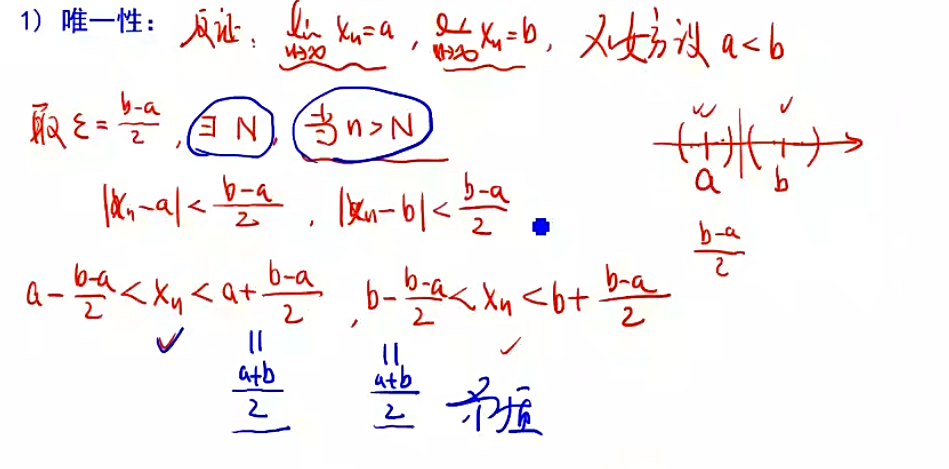 1) 唯一性: 反证: lim n→∞ xₙ=a, lim n→∞ xₙ=b, 不妨设 a<b
取 ε= (b-a)/2, ∃ N, 当 n>N
a b
|xₙ-a| < (b-a)/2, |xₙ-b| < (b-a)/2
(b-a)/2
a- (b-a)/2 < xₙ < a+ (b-a)/2, b- (b-a)/2 < xₙ < b+ (b-a)/2
|| ||
(a+b)/2 (a+b)/2 矛盾